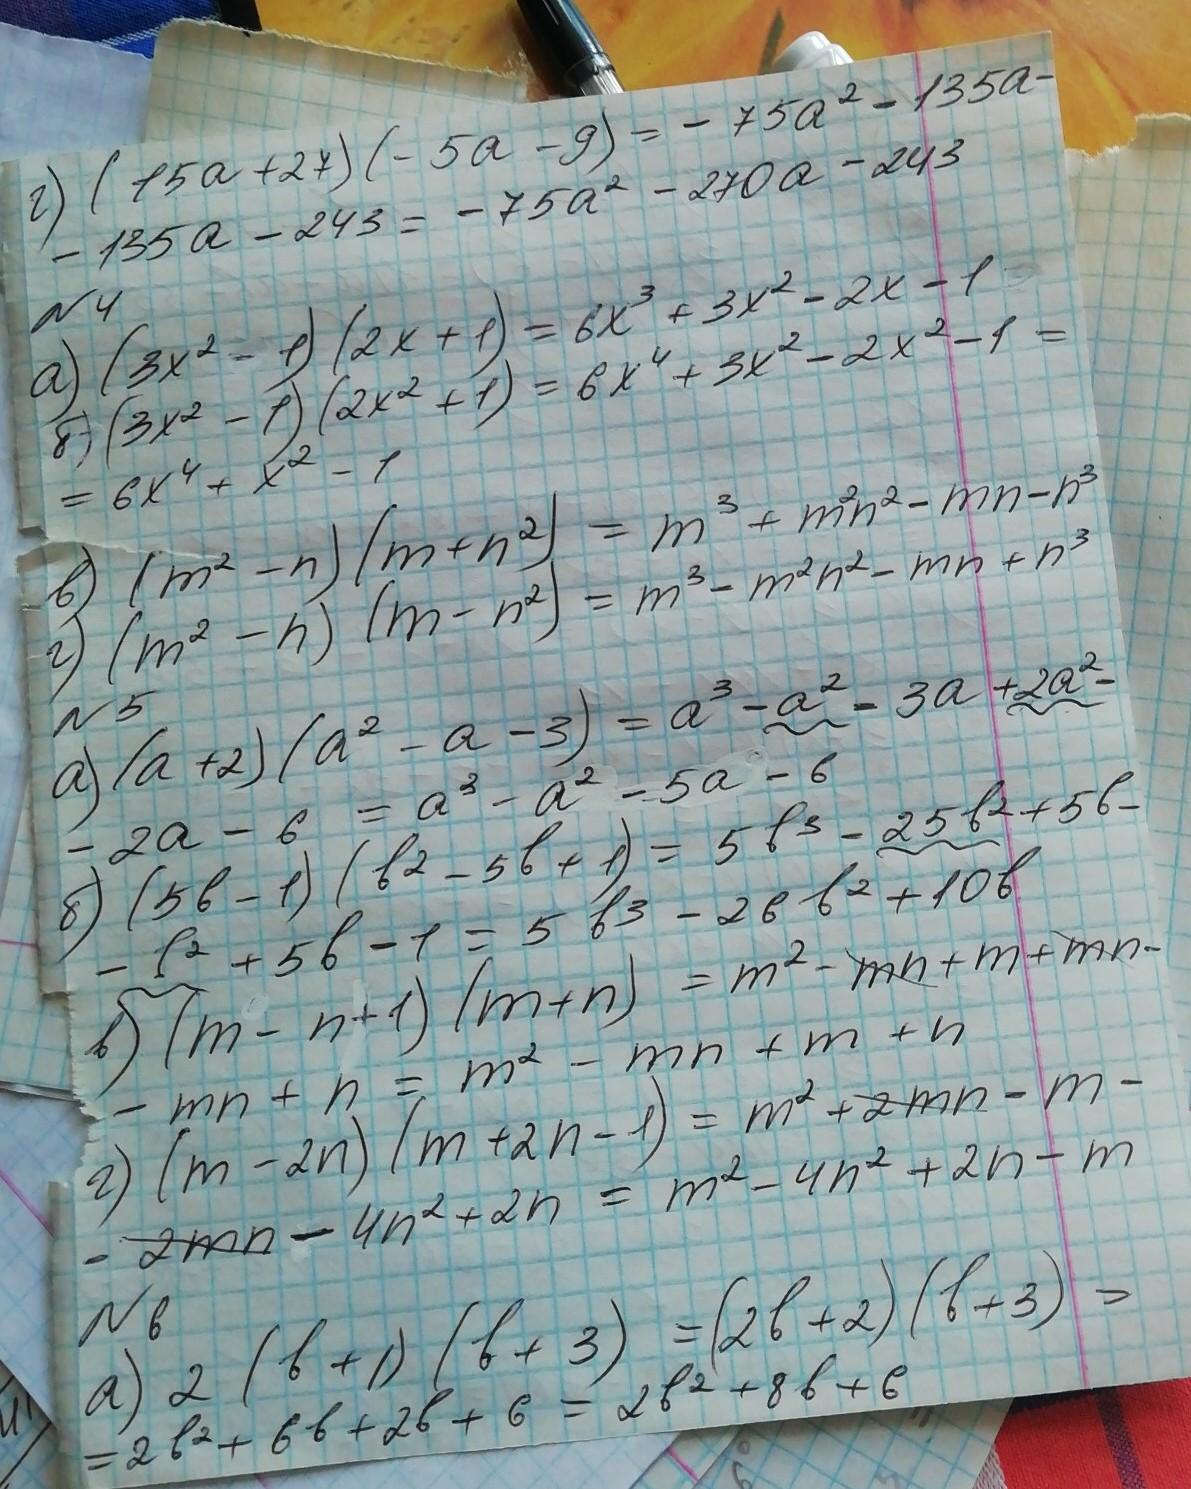 г) (15a+27)(-5a-9) = -75a² - 135a -
- 135a - 243 = -75a² - 270a - 243
N4
а) (3x² - 1)(2x + 1) = 6x³ + 3x² - 2x - 1
б) (3x² - 1)(2x² + 1) = 6x⁴ + 3x² - 2x² - 1 =
= 6x⁴ + x² - 1
в) (m² - n)(m + n²) = m³ + m²n² - mn - n³
г) (m² - n)(m - n²) = m³ - m²n² - mn + n³
N5
а) (a + 2)(a² - a - 3) = a³ - a² - 3a + 2a² -
- 2a - 6 = a³ - a² - 5a - 6
б) (5b - 1)(b² - 5b + 1) = 5b³ - 25b² + 5b -
- b² + 5b - 1 = 5b³ - 26b² + 10b
в) (m - n + 1)(m + n) = m² - mn + m + mn -
- mn + n = m² - mn + m + n
г) (m - 2n)(m + 2n - 1) = m² + 2mn - m -
- 2mn - 4n² + 2n = m² - 4n² + 2n - m
N6
а) 2(b + 1)(b + 3) = (2b + 2)(b + 3) =
= 2b² + 6b + 2b + 6 = 2b² + 8b + 6